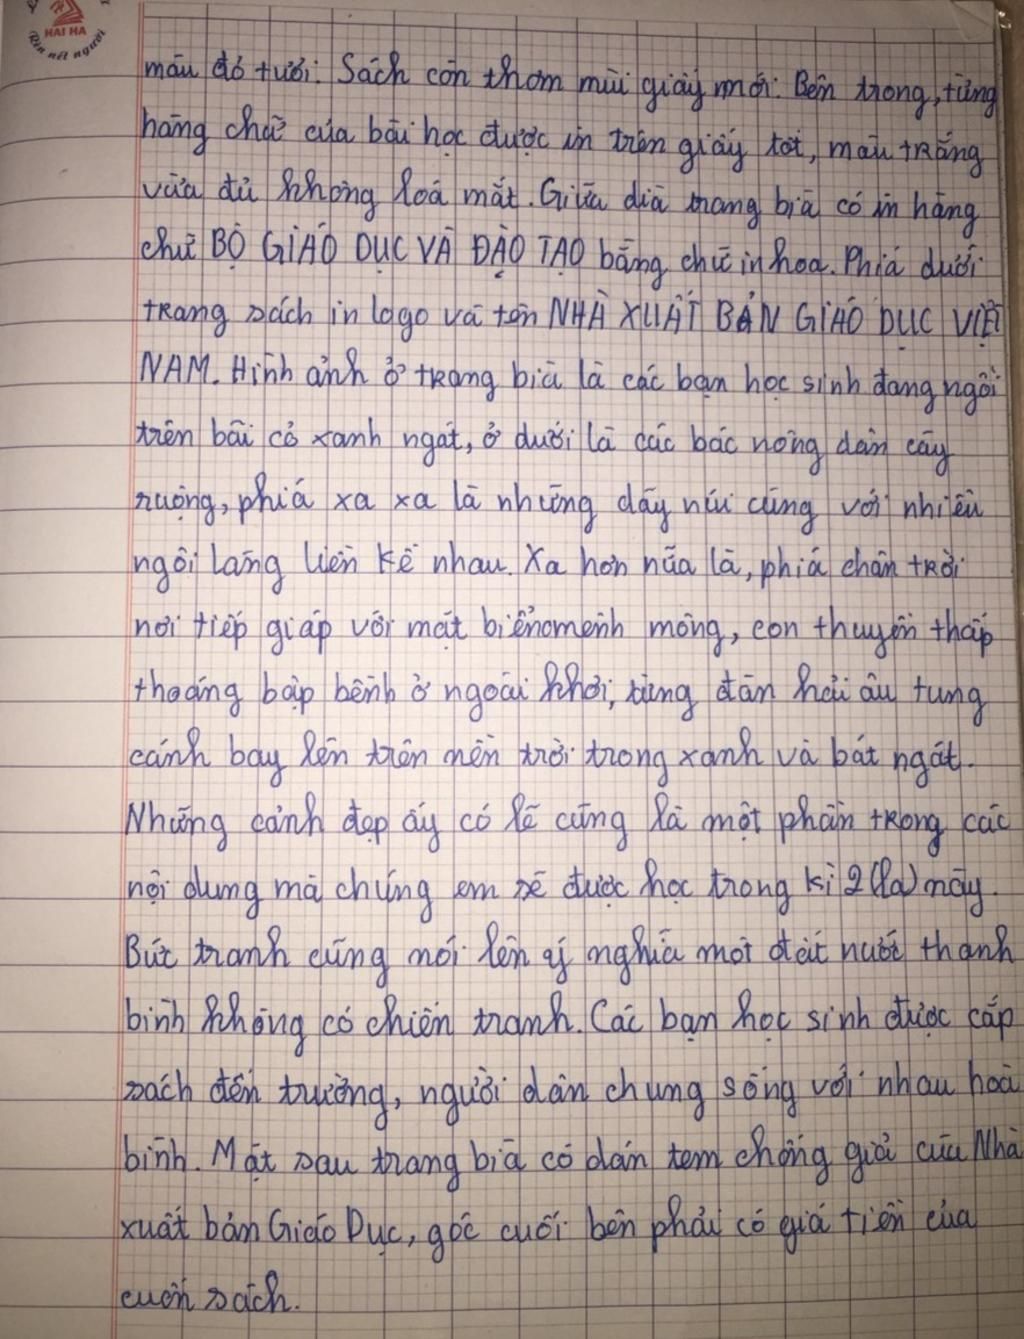 HAI HA
Rèn nét người
màu đỏ tươi. Sách còn thơm mùi giấy mới. Bên trong, từng
hàng chữ của bài học được in trên giấy tốt, màu trắng
vừa đủ không loá mắt. Giữa dìa trang bìa có in hàng
chữ BỘ GIÁO DỤC VÀ ĐÀO TẠO bằng chữ in hoa. Phía dưới
trang sách in logo và tên NHÀ XUẤT BẢN GIÁO DỤC VIỆT
NAM. Hình ảnh ở trang bìa là các bạn học sinh đang ngồi
trên bãi cỏ xanh ngát, ở dưới là các bác nông dân cày
ruộng, phía xa xa là những dãy núi cùng với nhiều
ngôi làng liền kề nhau. Xa hơn nữa là, phía chân trời
nơi tiếp giáp với mặt biển mênh mông, con thuyền thấp
thoáng bập bềnh ở ngoài khơi, từng đàn hải âu tung
cánh bay lên trên nền trời trong xanh và bát ngát.
Những cảnh đẹp ấy có lẽ cũng là một phần trong các
nội dung mà chúng em sẽ được học trong kì 2 (la) này.
Bức tranh cũng nói lên ý nghĩa một đất nước thanh
bình không có chiến tranh. Các bạn học sinh được cắp
sách đến trường, người dân chung sống với nhau hoà
bình. Mặt sau trang bìa có dán tem chống giả của Nhà
xuất bản Giáo Dục, góc cuối bên phải có giá tiền của
cuốn sách.